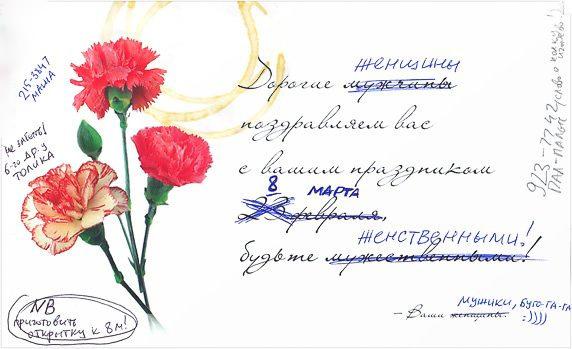 женщины
Дорогие мужчины
поздравляем вас
с вашим праздником
8 марта
23 февраля,
женственными!
будьте мужественными!
мужики, буго-га-га
:))))
– Ваши женщины.
215-3847
МАША
НЕ ЗАБЫТЬ!
6-го ДР. у
ТОЛИКА
NB
приготовить
открытку к 8 м!
923-7742
ПАЛ-ПАЛЫЧ